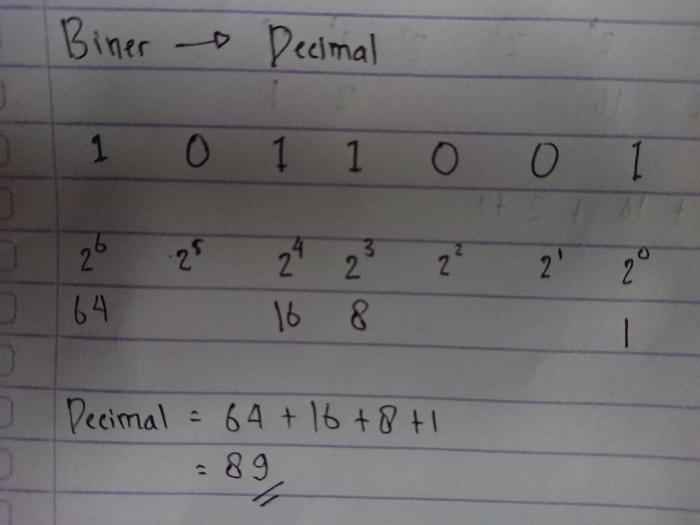 Biner → Decimal
1 0 1 1 0 0 1
2⁶ 2⁵ 2⁴ 2³ 2² 2¹ 2⁰
64 16 8 1
Decimal = 64 + 16 + 8 + 1
= 89